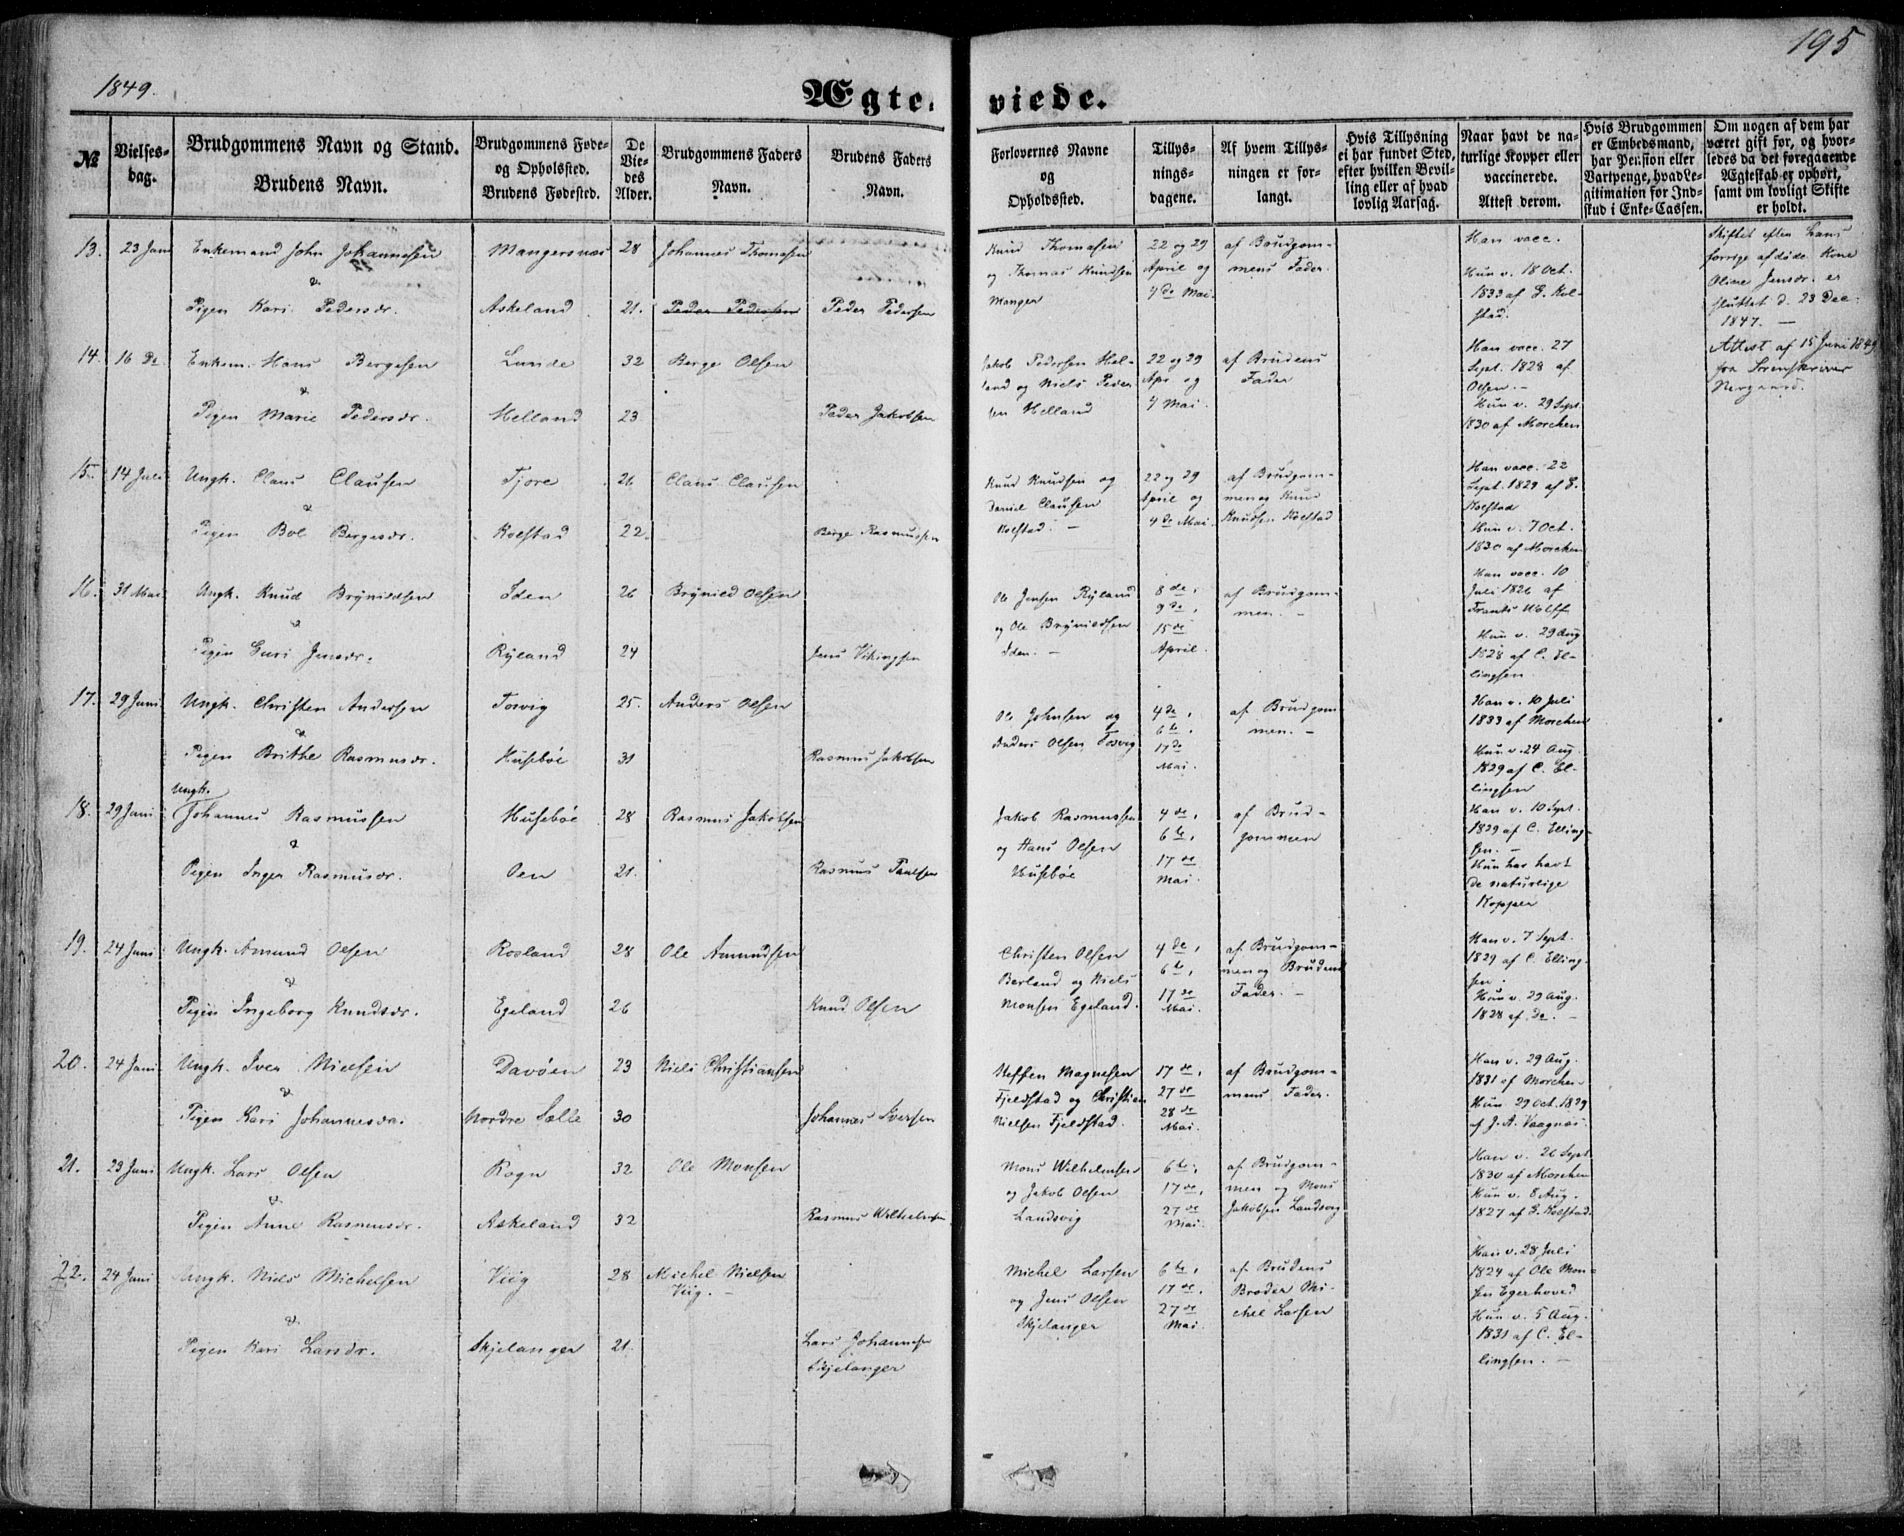 195
1849.
Ægteviede.
No
Vielses-
dag.
Brudgommens Navn og Stand.
Brudens Navn.
Brudgommens Føde-
og Opholssted.
Brudens Fødested.
De
Vie-
des
Alder.
Brudgommens Faders
Navn.
Brudens Faders
Navn.
Forlovernes Navne
og
Opholdssted.
Tillys-
nings-
dagene.
Af hvem Tillys-
ningen er for-
langt.
Hvis Tillysning
ei har fundet Sted,
efter hvilken Bevil-
ling eller af hvad
lovlig Aarsag.
Naar havt de na-
turlige Kopper eller
vaccinerede.
Attest derom.
Hvis Brudgommen
er Embedsmand,
har Pension eller
Vartpenge, hvad Le-
gitimation for Ind-
skud i Enke-Cassen.
Om nogen af dem har
været gift før, og hvor-
ledes da det foregaaende
Ægteskab er ophørt,
samt om lovligt Skifte
er holdt.
13. 23 Juni Enkemand John Johannesen Mangersnæs 28 Johannes Thomesen
&
Pigen Kari Pedersdr. Askeland 21. Peder Pedersen Peder Pedersen
Knud Thomasen
og Thomas Knudsen
Manger
22 og 29
April og
4 de Mai.
af Brudgom-
mens Fader.
Han vacc.
Hun v. 18 Oct.
1833 af E. Kol-
stad.
Skiftet efter hans
forrige afdøde Kone
Oline Jensdr. er
sluttet d. 23 Dec.
1847. —
14. 16 De Enkem. Hans Bergesen Lunde 32 Berge Olsen
&
Pigen Marie Pedersdr. Helland 23 Peder Jakobsen
Jakob Pedersen Hel-
land og Niels Peder-
sen Helland
22 og 29
Apr og
4 Mai.
af Brudens
Fader
Han vacc. 27
Sept. 1828 af
Olsen. —
Hun v. 29 Sept.
1830 af Morchen
Attest af 15 Juni 1849
fra Sorenskriver
Nergaard.
15. 14 Juli Ungk. Claus Clausen Tjore 26 Claus Clausen
Pigen Bol Bergesdr. Kolstad 22. Berge Rasmussen
Knud Knudsen og
Daniel Clausen
Kolstad. —
22 og 29
April og
4 de Mai.
af Brudgom-
men og Knud
Knudsen Kolstad
Han vacc. 22
Sept. 1829 af E.
Kolstad
Hun v. 7 Oct.
1830 af Morchen
16. 31 Mai Ungk. Knud Brynildsen Iden 26 Brynild Olsen
&
Pigen Guri Jensdr. Ryland 24 Jens Vikingsen
Ole Jensen Ryland
og Ole Brynildsen
Iden. —
8 de,
9 de,
15 de
April.
af Brudgom-
men. —
Han vacc. 10
Juli 1826 af
Frants Wolff
Hun v. 29 Aug
1828 af C. El-
lingsen
17. 29 Juni Ungk. Christen Andersen Tosvig 25. Anders Olsen
&
Pigen Brithe Rasmusdr. Husebøe 31 Rasmus Jakobsen
Ole Johnsen og
Anders Olsen Tosvig
4 de,
6 te,
17 de
Mai.
af Brudgom
men. —
Han v. 10 Juli
1833 af Morchen
Hun v. 24 Aug.
1829 af C. El-
lingsen
Ungk.
18. 29 Juni Johannes Rasmussen Husebøe 28 Rasmus Jakobsen
&
Pigen Inger Rasmusdr. Oen 21. Rasmus Paulsen
Jakob Rasmussen
og Hans Olsen
Husebøe
4 de,
6 te,
17 de
Mai.
af Brud-
gommen
Han v. 10 Sept.
1829 af C. Elling-
sen. —
Hun har havt
de naturlige
Kopper
19. 24 Juni Ungk. Amund Olsen Rosland 28 Ole Amundsen
&
Pigen Ingeborg Knudsdr. Egeland 26 Knud Olsen
Christen Olsen
Berland og Niels
Monsen Egeland.
4 de,
6 te,
17 de
Mai.
af Brudgom-
men og Brudens
Fader. —
Han v. 7 Sept.
1829 af C. Elling-
sen.
Hun v. 29 Aug.
1828 af do. —
20. 24 Juni Ungk. Iver Nielsen Davøen 23 Niels Christiansen
&
Pigen Kari Johannesdr. Nordre Sælle 30 Johannes Iversen
Steffen Magnesen
Fjeldstad og Christian
Nielsen Fjeldstad.
17 de,
27 de
28 de
Mai.
af Brudgom-
mens Fader.
Han v. 29 Aug.
1831 af Morchen
Hun 29 Oct. 1829
af J. A. Vaagnæs
21. 23 Juni Ungk. Lars Olsen Rogn 32 Ole Monsen
&
Pigen Anne Rasmusdr. Askeland 32 Rasmus Wilhelmsen
Mons Wilhelmsen
og Jakob Olsen
Landsvig
6 te,
17 de,
27 de
Mai.
af Brudgom-
men og Mons
Jakobsen Landsvig
Han v. 26 Sept
1830 af Morchen
Hun v. 8 Aug.
1827 af E. Kolstad.
22. 24 Juni Ungk. Niels Michelsen Viig 28 Michel Nielsen
Viig. —
&
Pigen Kari Larsdr. Skjelanger 21. Lars Johannesen
Skjelanger
Michel Larsen
og Jens Olsen
Skjelanger
6 te,
17 de,
27 de
Mai.
af Brudens
Broder Mi-
chel Larsen
Han v. 28 Juli
1824 af Ole Mon-
sen Egerhoved
Hun v. 5 Aug.
1831 af C. El-
lingsen. —